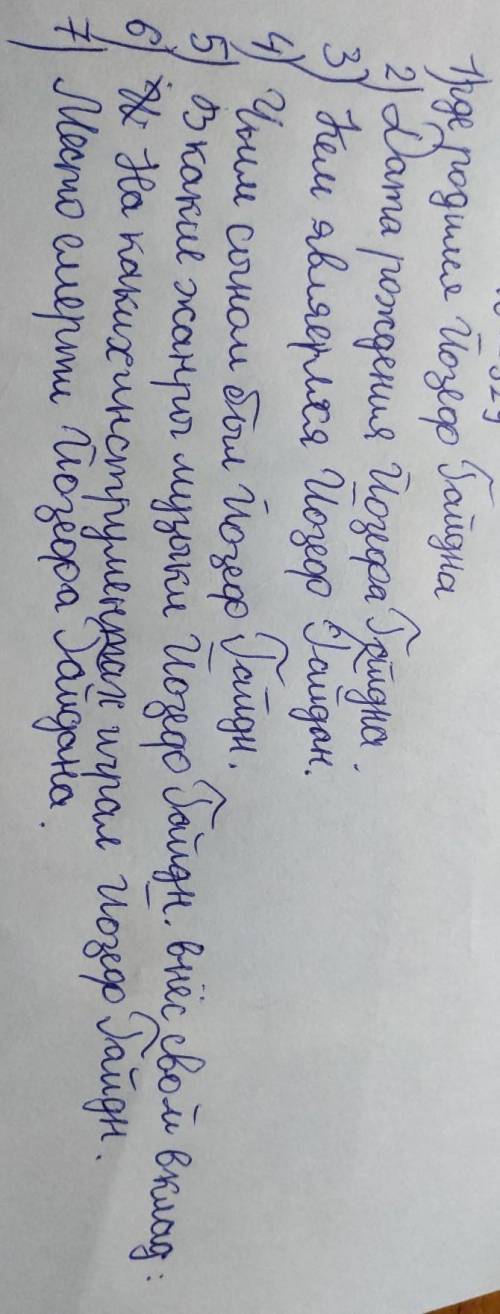 1) где родился Йозеф Гайдна
2) Дата рождения Йозефа Гайдна.
3) Кем являермся Йозеф Гайдан.
4) Чьим сыном был Йозеф Гайдн.
5) В какие жанры музыки Йозеф Гайдн. внёс свой вклад:
6) На каких инструментах играл Йозеф Гайдн.
7) Место смерти Йозефа Гайдана.